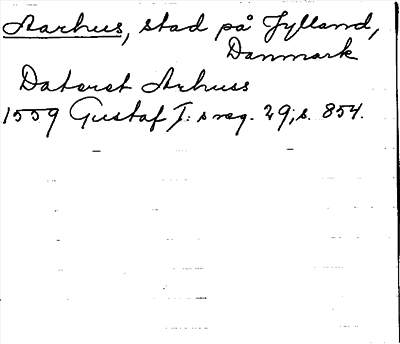 Aarhus, stad på Jylland,
Danmark
Daterat Arhuss
1559 Gustaf I: s reg. 29, s. 854.